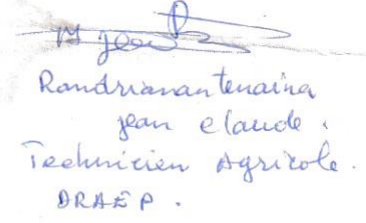 Randrianantenaina
jean claude.
Technicien Agricole.
DRAEP.